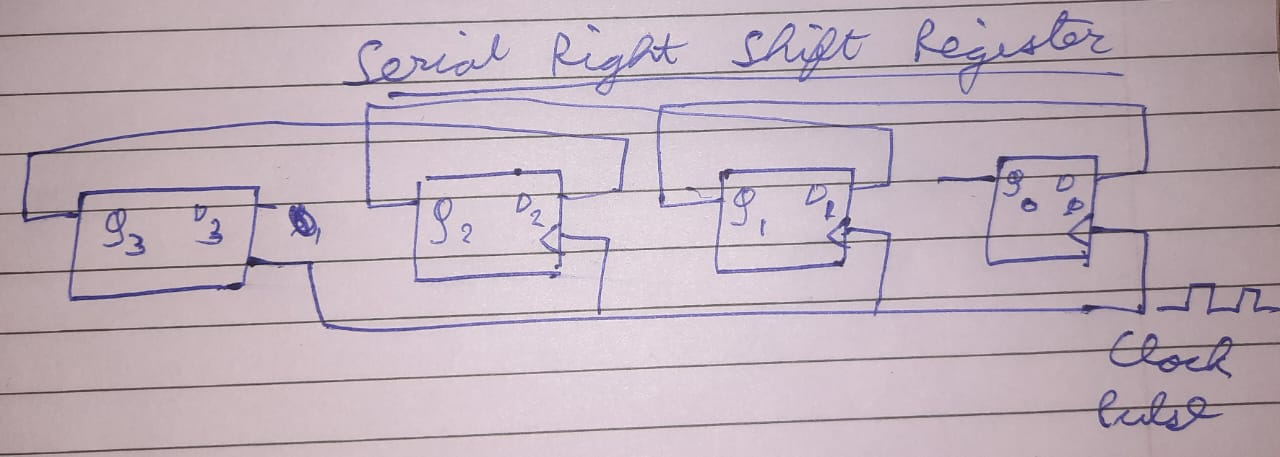 Serial Right Shift Register
Q3 D3 Q2 D2 Q1 D1 Q0 D0
Clock
Pulse